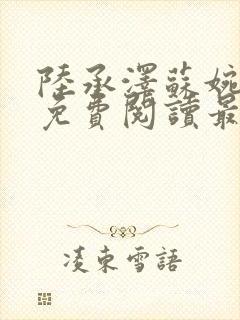 陸承澤蘇婉
免費閱讀最
凌東雪語